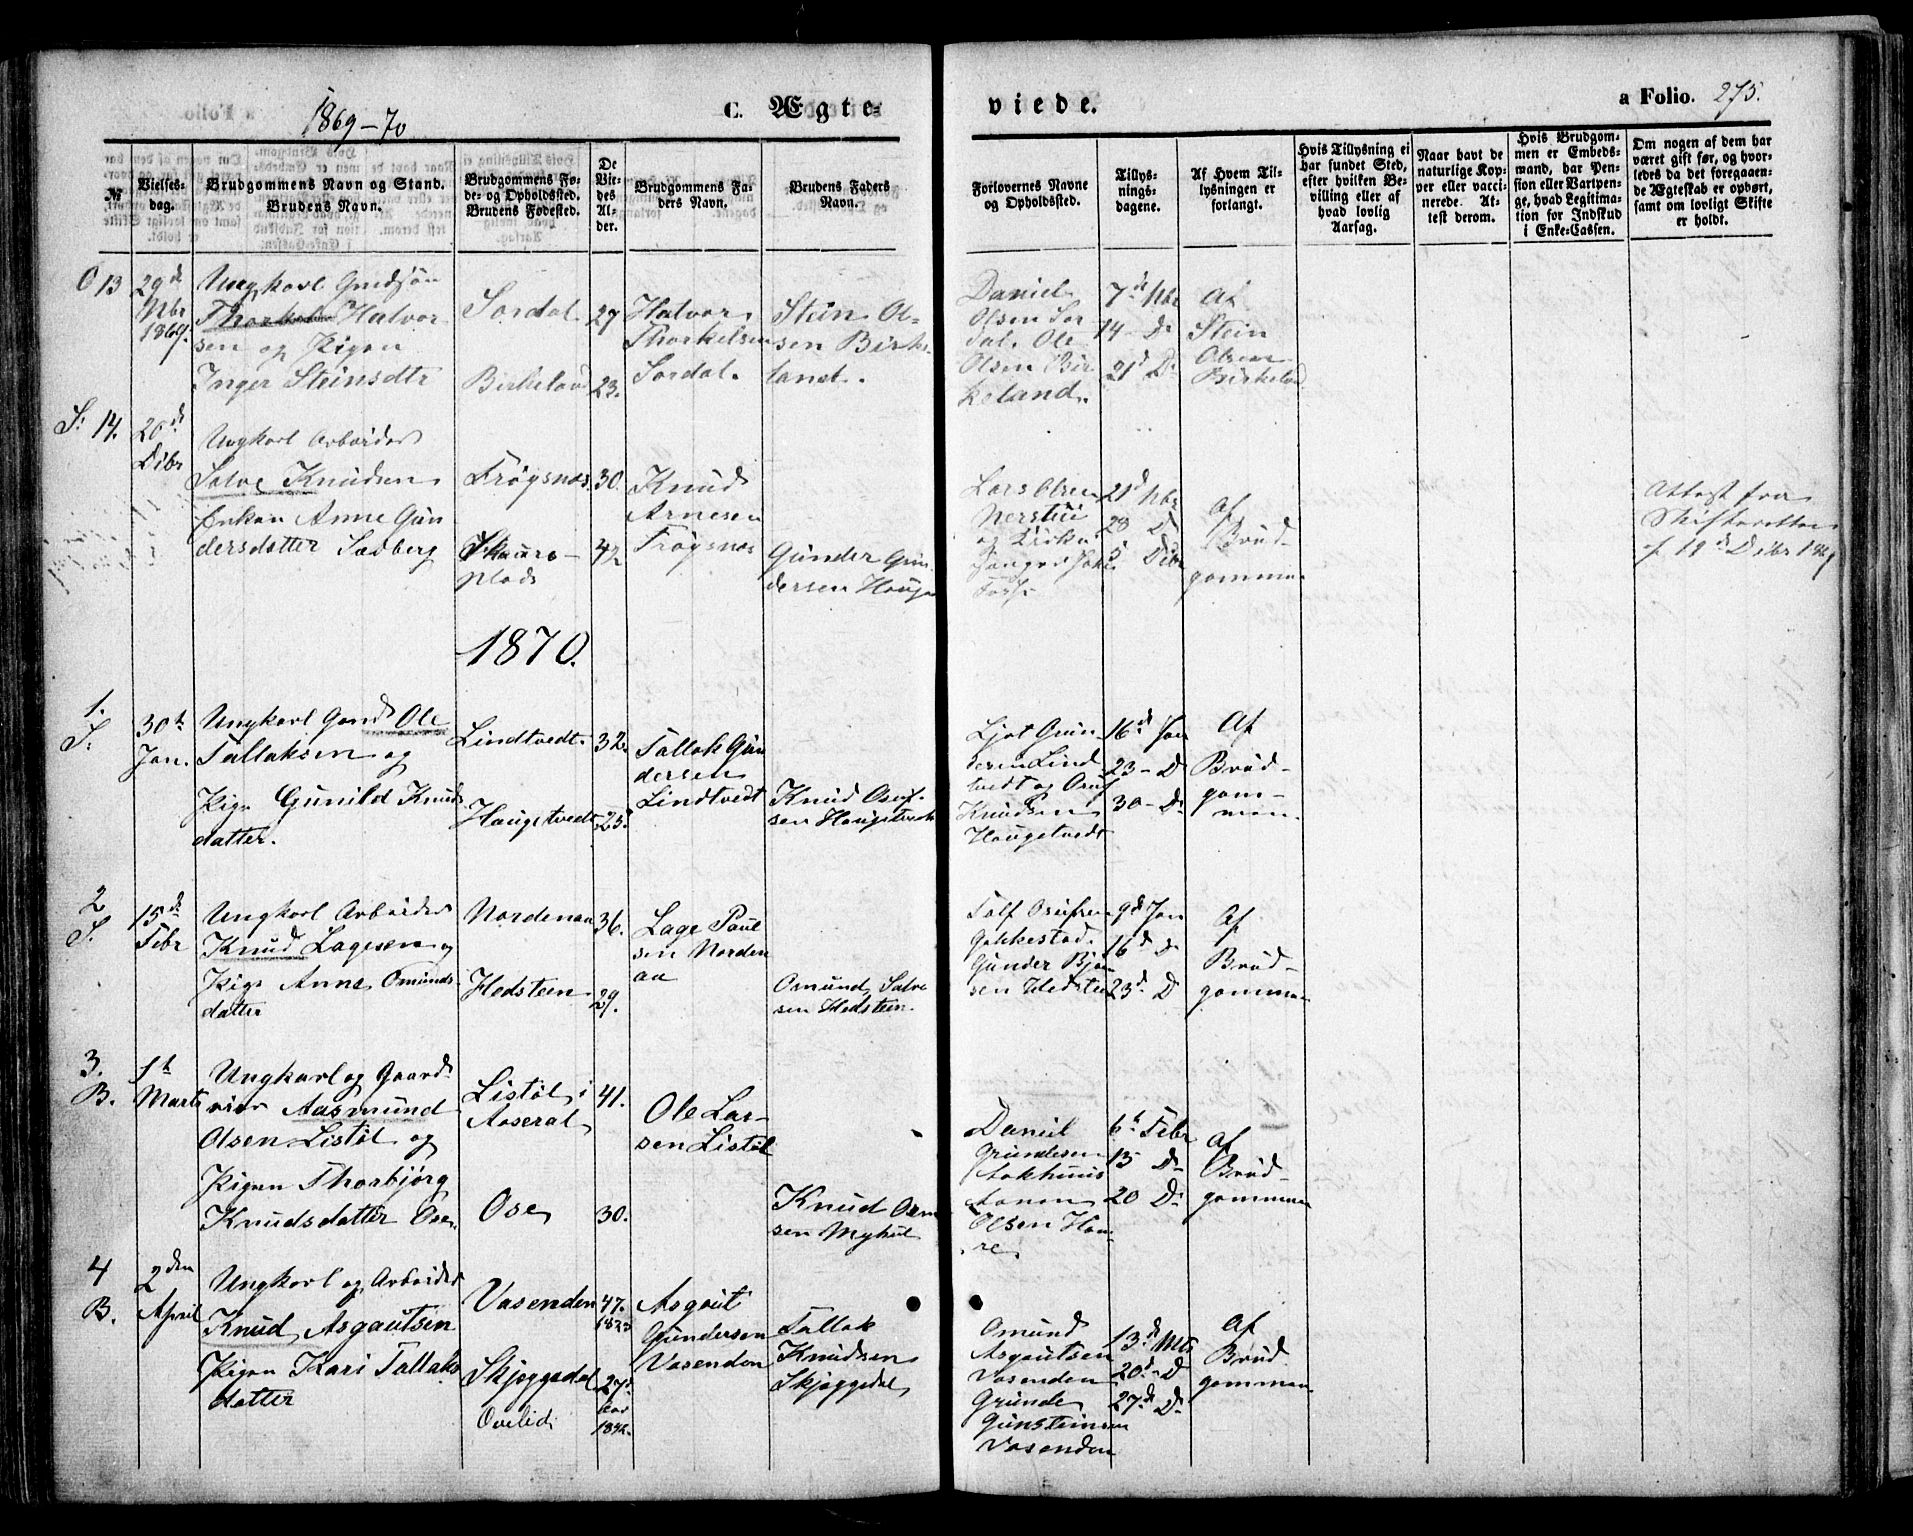 1869-70
C. Ægte-
viede.
a Folio. 275.
№
Vielses-
dag.
Brudgommens Navn og Stand.
Brudens Navn.
Brudgommens Fø-
de- og Opholdssted.
Brudens Fødested.
De
Vie-
des
Al-
der.
Brudgommens Fa-
ders Navn.
Brudens Faders
Navn.
Forlovernes Navne
og Opholdssted.
Tillys-
nings-
dagene.
Af Hvem Til-
lysningen er
forlangt.
Hvis Tillysning ei
har fundet Sted,
efter hvilken Be-
villing eller af
hvad lovlig
Aarsag.
Naar havt de
naturlige Kop-
per eller vacci-
nerede. At-
test derom.
Hvis Brudgom-
men er Embeds-
mand, har Pen-
sion eller Vartpen-
ge, hvad Legitima-
tion for Indskud
i Enke-Cassen.
Om nogen af dem har
været gift før, og hvor-
ledes da det foregaaen-
de Ægteskab er ophørt,
samt om lovligt Skifte
er holdt.
O 13
29de
Nbr
1869.
Ungkarl
Halvor
sen og Pigen
Inger Steinsdtr
Sordal
Birkeland
27
23.
Halvor
Thorkelsen
Sordal.
Stein Ol-
sen Birke-
land.
Daniel
Olsen Sor
dal. Ole
Olsen Bir
keland.
7de Nbr
14 - D
21d D
Af
Stein
Olsen
Birkeland
S. 14.
20de
Dibr
Ungkarl Arbeider
Salve Knudsen
Enken Anne Gun
dersdatter Sadberg
Frøysnæs
Skaare-
plads
30.
42
Knud
Arnesen
Frøysnæs
Gunder Gun
dersen Hauge
Lars Olsen
Nerstue
21d Nbr
28 D
5 Dibr
Af
Brud-
gommen
Attest fra
Skifteretten
f 19de Dibr 1869
1870.
1.
S.
30te
Jan.
Ungkarl Gaard Ole
Tallaksen og
Pige Gunild Knuds
datter.
Lindtvedt.
Haugetvedt
32.
25.
Tallak Gun
dersen
Lindtvedt
Knud Osuf-
sen Haugetvedt
Ljot Gun
dersen Lind
tvedt og Osuf
Knudsen
Haugetvedt
16de Jan
23 - D
30 - D
Af
Brud-
gom-
men.
2
S.
15de
Febr
Ungkarl Arbeider
Knud Lagesen og
Pige Anne Omunds-
datter
Nordenaa
Hodsteen
36.
29.
Lage Paul
sen Norden
aa
Omund Salve
sen Hodsteen.
Tolf Osufsen
Gakkestad.
Gunder Bjør
sen Hodsteen
9de Jan
16d D
23d D
Af
Brud-
gommen
3.
B.
1te
Marts
Ungkarl og Gaard-
eier Aasmund
Olsen Listøl og
Pigen Thorbjørg
Knudsdatter Ose.
Listøl i
Aaseral
Ose
41.
30.
Ole Lar-
sen Listøl
Knud Osm
sen Myhul
Daniel
Grundesen
Aakhuus
Aanon
Olsen Hou-
re
6te Febr
13 D
20 D
Af
Brud-
gommen
4
B.
2den
April
Ungkarl og Arbeider
Knud Asgautsen
Pigen Kari Tallaks
datter
Vasenden
Skjeggedal
Ovelid
47.
1823
27
Aar
1842.
Asgaut
Gundersen
Vasenden
Tallak
Knudsen
Skjeggedal
Omund
Asgautsen
Vasenden
Grunde
Gunsteinsen
Vasenden
13de Mts
20d - D
27d D
Af
Brud
gommen